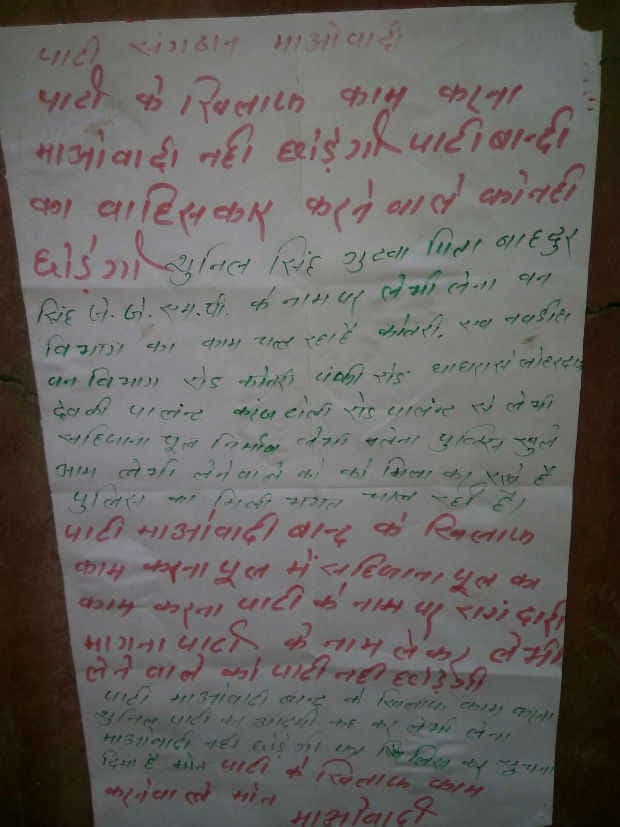 पार्टी संगठान माओवादी
पार्टी के खिलाफ काम करना
माओवादी नही छोड़ेगी पार्टी बान्दी
का वाहिसकार करने वाले को नही
छोड़ेगी सुनिल सिंह गुटवा पिता बाहदुर
सिंह जे. जे. एम. पी. के नाम पर लेभी लेना वन
विभाग का काम चल रहा है कोतरी.
वन विभाग रोड कोतरी पांकी रोड
देवकी पालंन्ट टोली रोड पालंन्ट से लेभी
सहियाना पूल निर्माण लेभी पुलिस खुले
आम लेभी लेने वाले को मिला कर रखे है
पुलिस का मिली भगत चाल रही है।
पार्टी माओवादी बान्द के खिलाफ
काम करना पूल में सहियाना पूल का
काम करना पार्टी के नाम पर रागंदारी
मागना पार्टी के नाम लेकर लेभी
लेने वाले को पार्टी नही छोड़ेगी
पार्टी माओवादी बान्द के खिलाफ काम करना
सुनिल पार्टी का आदमी कह कर लेभी लेना
माओवादी नही छोड़ेगी सुचना
दिया है पार्टी के खिलाफ काम
करनेवाले मोत
माओवादी